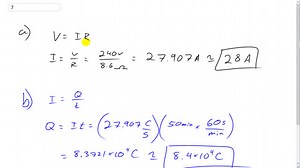 7
a) V = IR
I = V/R = 240V/8.6Ω = 27.907A ≅ 28A
b) I = Q/t
Q = It = (27.907 C/S)(50min × 60s/min)
= 8.3721×10⁴C ≅ 8.4×10⁴C